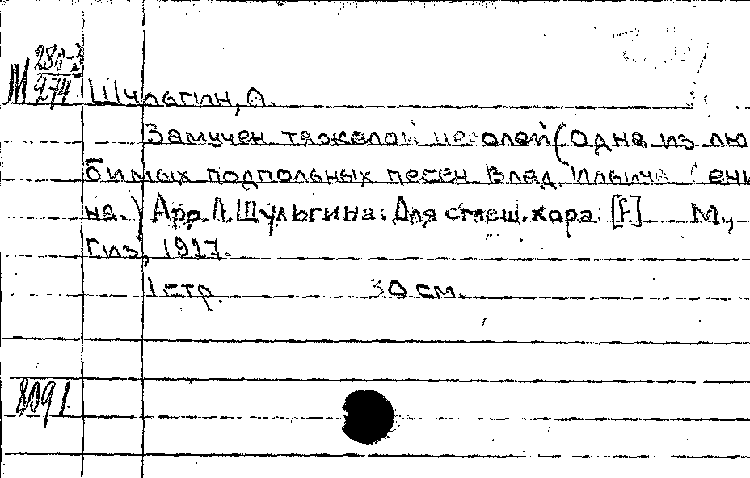 М 280-3
274
Шульгин, А.
Замучен тяжелой неволей (одна из лю
бимых подпольных песен Влад. Ильича Лени
на.) Арр. А. Шульгина. Для смеш. хора. [F] М.,
Гиз, 1927.
1 стр. 30 см.
8091